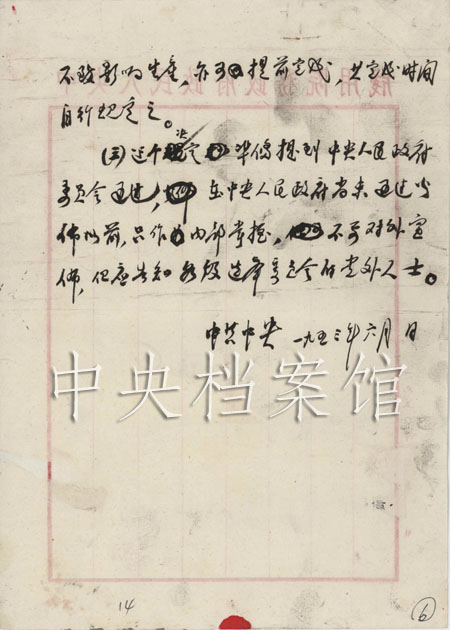 不致影响生产，亦可提前完成，其完成时间
自行规定之。
(三)这个决定准备提到中央人民政府
委员会通过，在中央人民政府者未通过公
佈以前，只作内部掌握，不可对外宣
佈，但应告知各级选举委员会的党外人士。
中共中央 一九五三年六月 日
中央档案馆
14
6